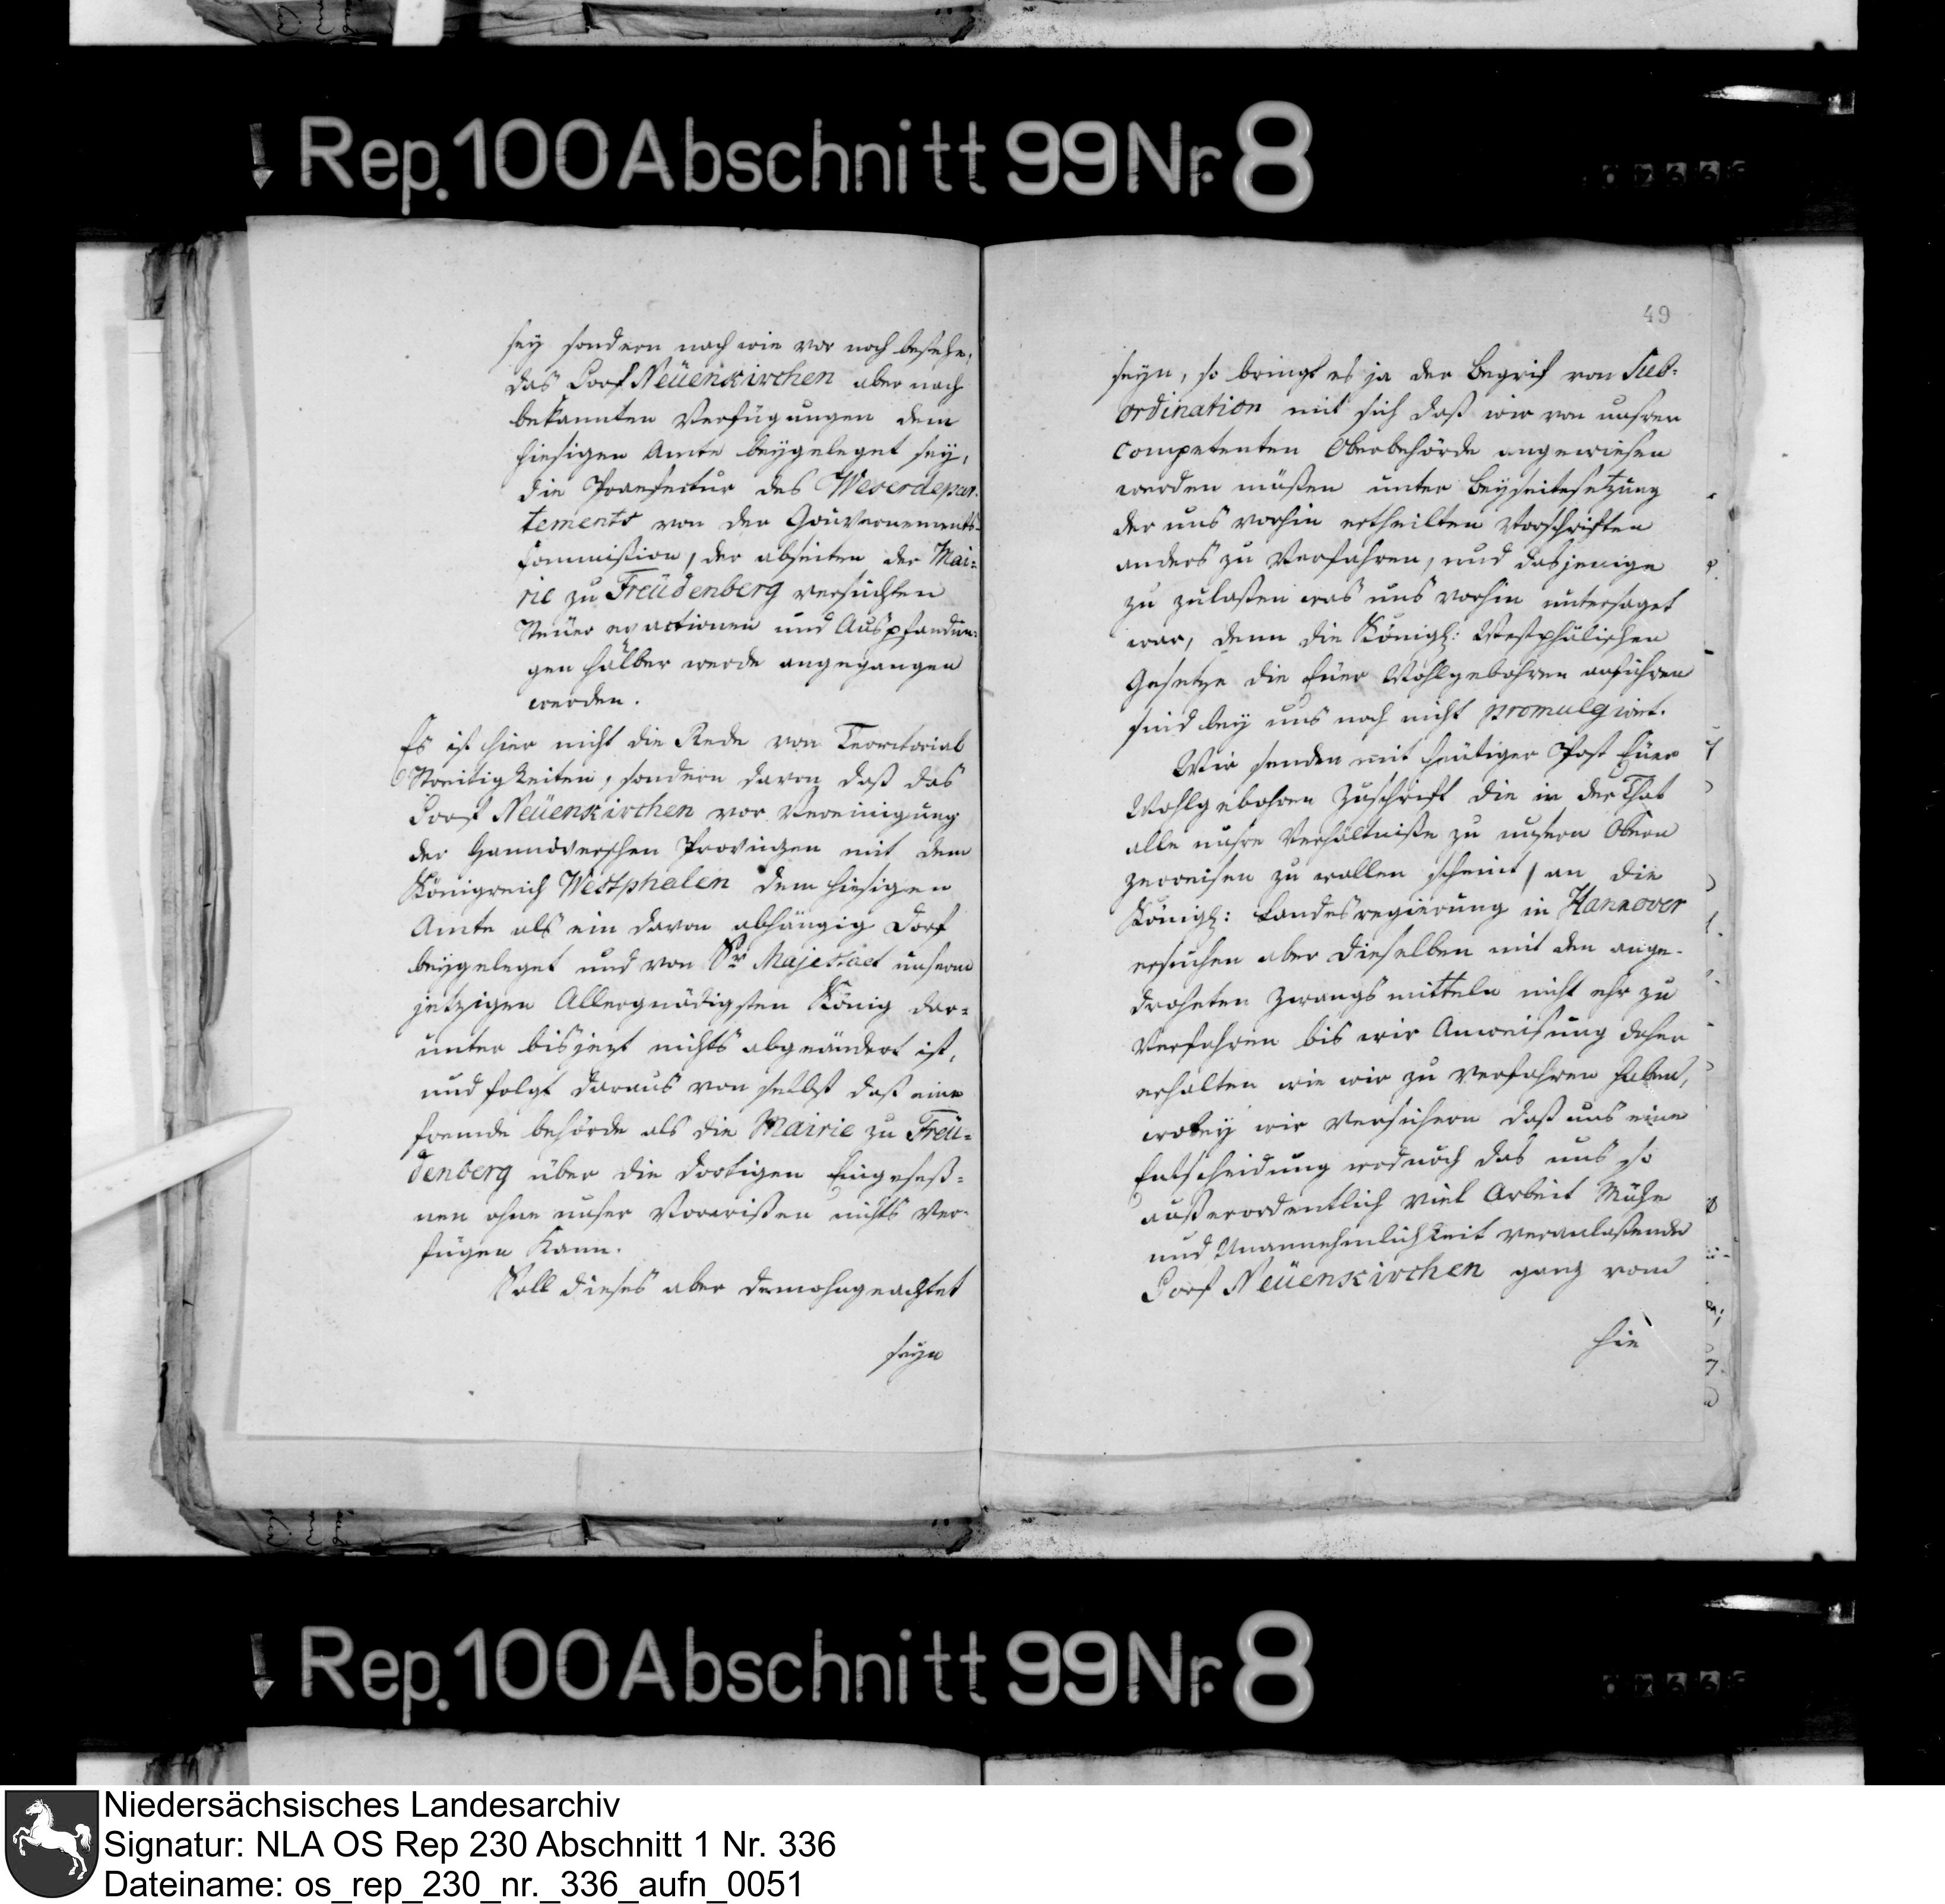 Rep. 100 Abschnitt 99 Nr. 8
sey sondern nach wie vor noch bestehe,
das Dorf Neüenkirchen aber nach
bekannten Verfügungen dem
hiesigen Amte beygeleget sey,
die Praefectur des Weserdepar-
tements von der Gouvernements-
Commission, der abseiten der Mai=
rie zu Freüdenberg versuchten
Steuer exactionen und Auspfandun=
gen halber werde angegangen
werden.
Es ist hier nicht die Rede von Territorial
Streitigkeiten, sondern davon daß das
Dorf Neüenkirchen vor Vereinigung
der Hannöverschen Provinzen mit dem
Königreich Westphalen dem hiesigen
Amte als ein davon abhängig Dorf
beygeleget und von Sr Majestaet unserm
jetzigen Allergnädigsten König dar=
unter bis jezt nichts abgeändert ist,
und folgt daraus von selbst daß eine
fremde behörde als die Mairie zu Freü=
denberg über die dortigen Eingeseß=
nen ohne unser Vorwißen nichts ver-
fügen kann.
Soll dieses aber demohngeachtet
seyn
49
seyn, so bringt es ja der Begrif von Sub=
ordination mit sich daß wir von unsrer
competenten Oberbehörde angewiesen
werden müßen unter Beyseitesetzung
der uns vorhin ertheilten Vorschriften
anders zu Verfahren, und dasjenige
zu zulaßen was uns vorhin untersaget
war, denn die Königl: Westphälischen
Gesetze die Euer Wohlgebohren anführen
sind bey uns noch nicht promulgirt.
Wir senden mit heutiger Post Euer
Wohlgebohren Zuschrift die in der That
alle unsre Verhältniße zu unsern Obern
zerreisen zu wollen scheint, an die
Königl: Landesregierung in Hannover
ersuchen aber dieselben mit den ange-
droheten Zwangsmitteln nicht ehr zu
Verfahren bis wir Anweisung daher
erhalten wie wir zu verfahren haben,
wobey wir versichern daß uns eine
Entscheidung wodurch das uns so
außerordentlich viel Arbeit Mühe
und Unannehmlichkeit veranlaßende
Dorf Neüenkirchen ganz vom
hie
Rep. 100 Abschnitt 99 Nr. 8
Niedersächsisches Landesarchiv
Signatur: NLA OS Rep 230 Abschnitt 1 Nr. 336
Dateiname: os_rep_230_nr._336_aufn_0051